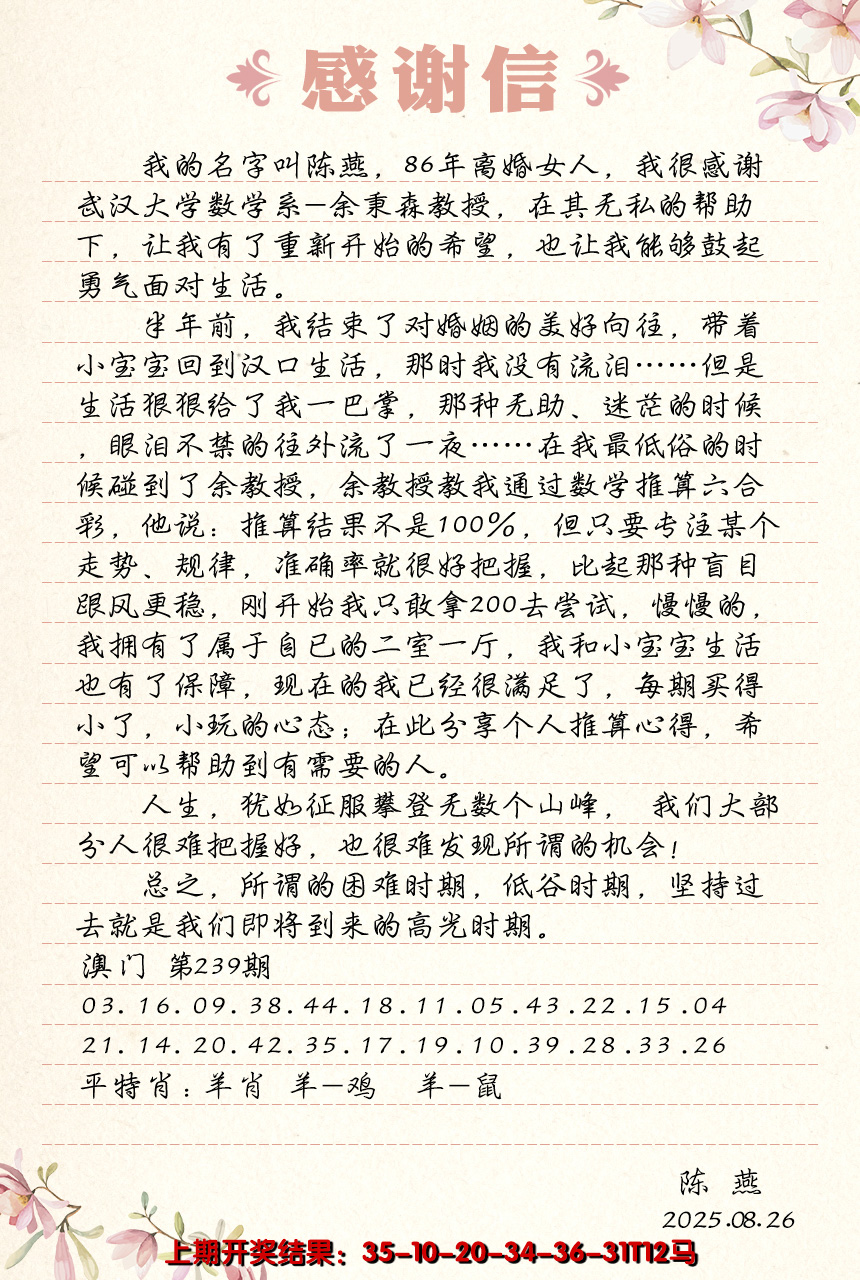 感谢信
我的名字叫陈燕，86年离婚女人，我很感谢
武汉大学数学系—余秉森教授，在其无私的帮助
下，让我有了重新开始的希望，也让我能够鼓起
勇气面对生活。
半年前，我结束了对婚姻的美好向往，带着
小宝宝回到汉口生活，那时我没有流泪……但是
生活狠狠给了我一巴掌，那种无助、迷茫的时候
，眼泪不禁的往外流了一夜……在我最低俗的时
候碰到了余教授，余教授教我通过数学推算六合
彩，他说：推算结果不是100%，但只要专注某个
走势、规律，准确率就很好把握，比起那种盲目
跟风更稳，刚开始我只敢拿200去尝试，慢慢的，
我拥有了属于自已的二室一厅，我和小宝宝生活
也有了保障，现在的我已经很满足了，每期买得
小了，小玩的心态；在此分享个人推算心得，希
望可以帮助到有需要的人。
人生，犹如征服攀登无数个山峰， 我们大部
分人很难把握好，也很难发现所谓的机会！
总之，所谓的困难时期，低谷时期，坚持过
去就是我们即将到来的高光时期。
澳门 第239期
03.16.09.38.44.18.11.05.43.22.15.04
21.14.20.42.35.17.19.10.39.28.33.26
平特肖：羊肖 羊—鸡 羊—鼠
陈 燕
2025.08.26
上期开奖结果：35-10-20-34-36-31T12马